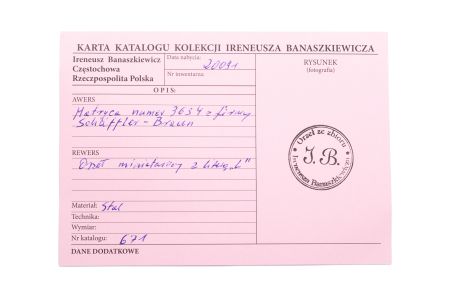 KARTA KATALOGU KOLEKCJI IRENEUSZA BANASZKIEWICZA
Ireneusz Banaszkiewicz
Częstochowa
Rzeczpospolita Polska
Data nabycia:
Nr inwentarza:
RYSUNEK
(fotografia)
OPIS:
AWERS
Matryca numer 3654 z firmy
Schäffler-Braun
REWERS
Orzeł mianatarowy z literą "L"
I. B.
Ireneusza Banaszkiewicza
Materiał: Stal
Technika:
Wymiar:
Nr katalogu: 671
DANE DODATKOWE